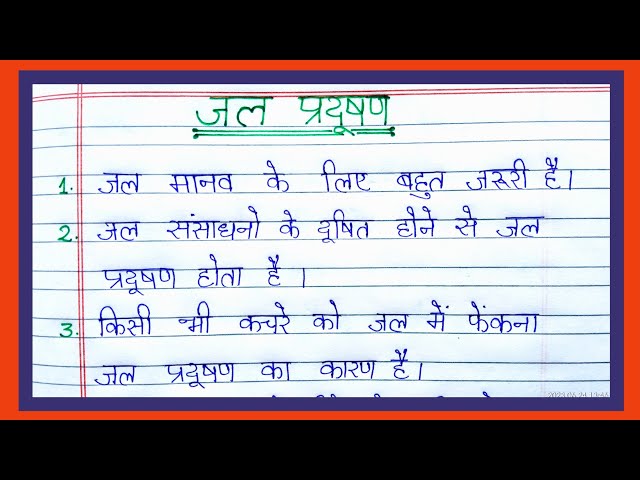 जल प्रदूषण
1. जल मानव के लिए बहुत जरूरी है।
2. जल संसाधनो के दूषित होने से जल
प्रदूषण होता है।
3. किसी भी कचरे को जल में फेंकना
जल प्रदूषण का कारण है।